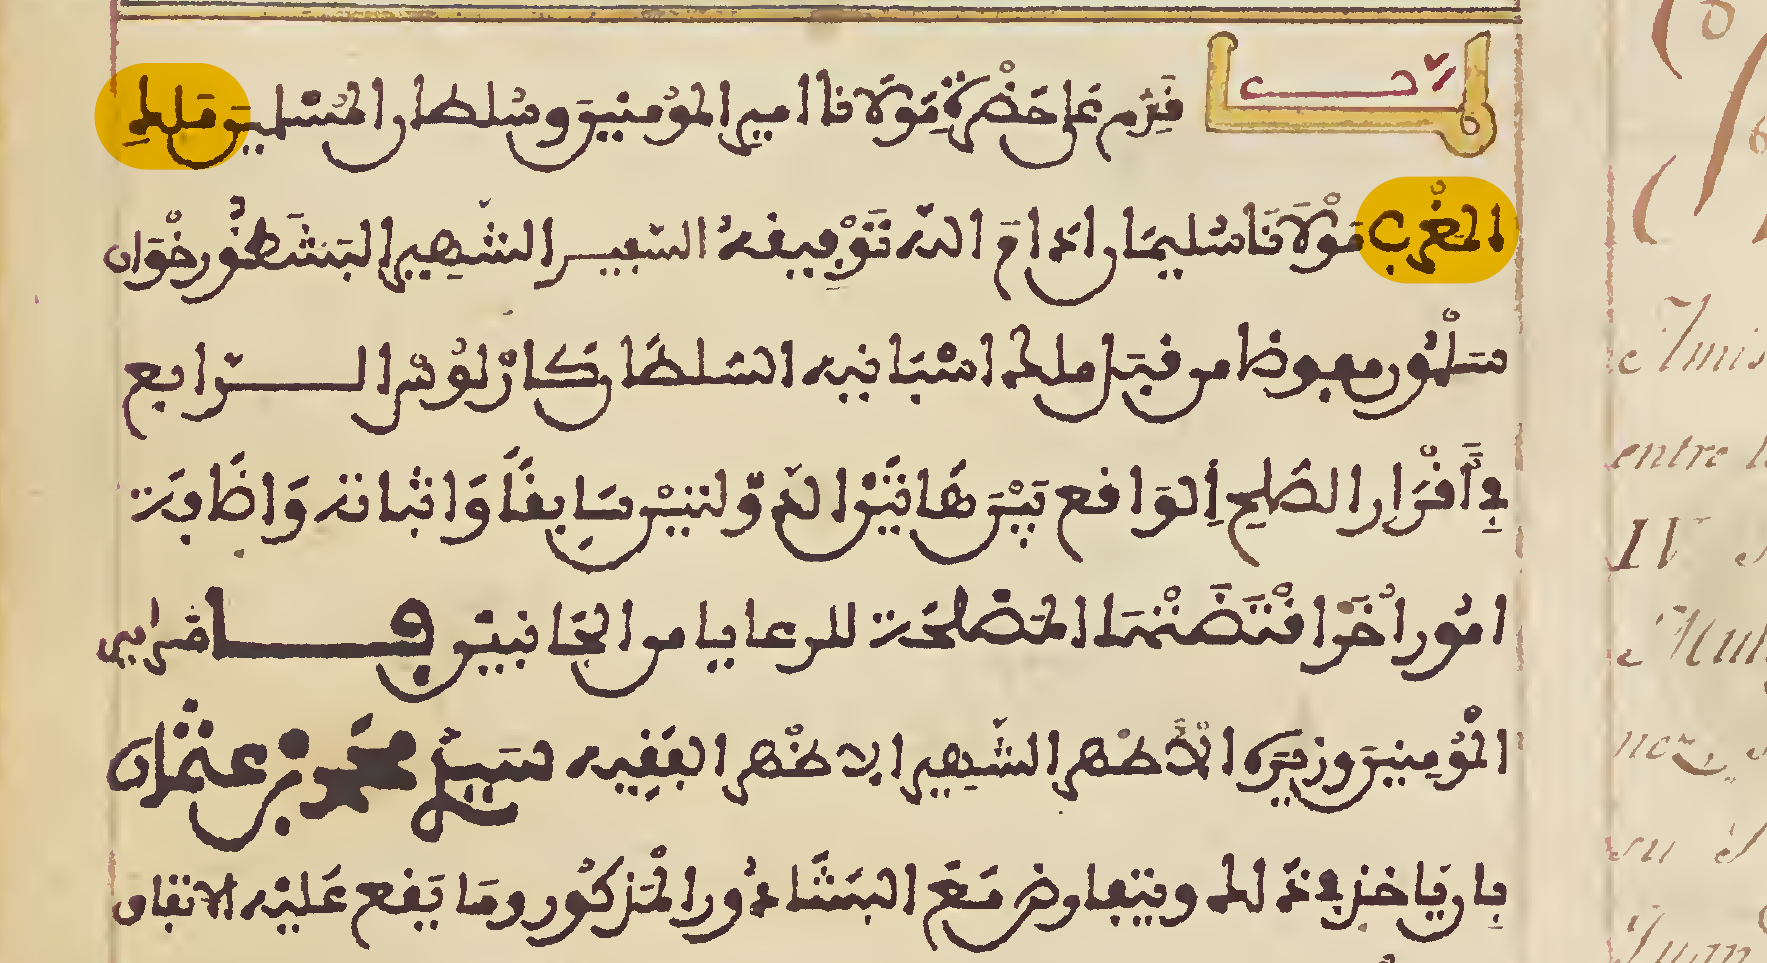 لما
قدم على حضرة مولانا امير المومنين وسلطان المسلمين ملك
المغرب مولانا سليمان ادام الله توفيقه السفير الشهير البشظور خوان
سلمون مبعوظا من قبل ملك اسبانيه السلطان كارلوس الرابع
في أقرار الصلح الواقع بين هاتين الدولتين سابقا واثباته واظافة
امور اخرا اقتضتها المصلحة للرعايا من الجانبين فامر امير
المومنين وزيره الأطهر الشهير الاظهر الفقيه السيد محمد بن عثمان
بان ياخذ في ذلك ويتفاوض مع البشادور المذكور وما يقع عليه الاتفاق
entre l
IV